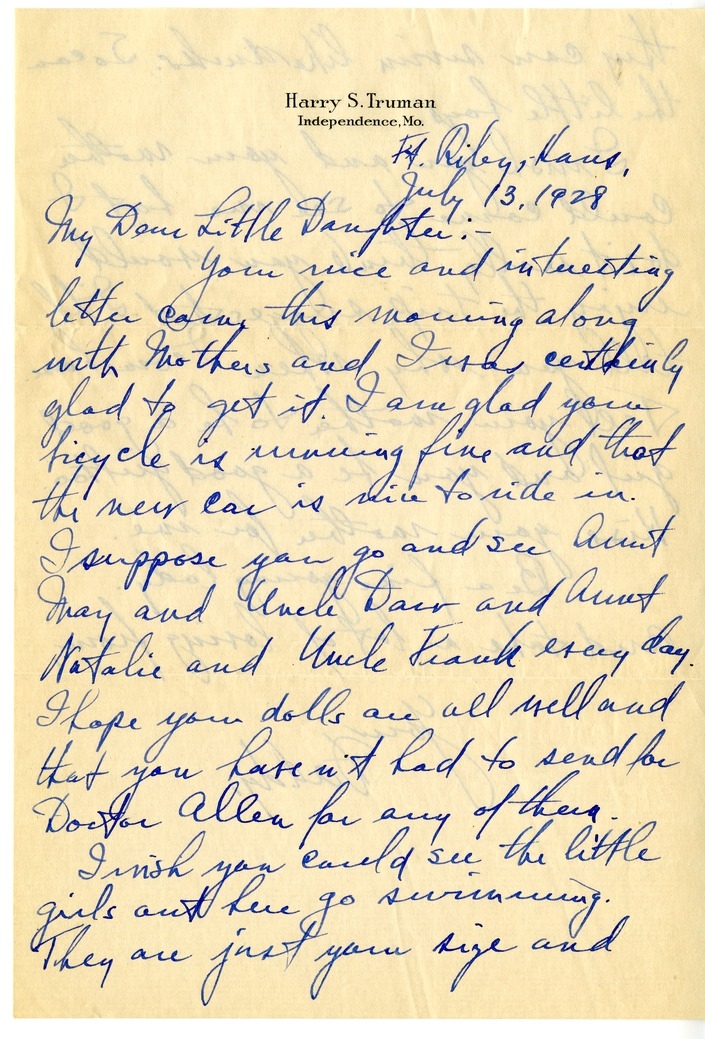 Harry S. Truman
Independence, Mo.
Ft. Riley, Kans,
July 13, 1928
My Dear Little Daughter:-
Your nice and interesting
letter came this morning along
with Mothers and I was certainly
glad to get it. I am glad your
bicycle is running fine and that
the new car is nice to ride in.
I suppose you go and see Aunt
May and Uncle Daw and Aunt
Natalie and Uncle Frank every day.
I hope your dolls are all well and
that you haven't had to send for
Doctor Allen for any of them.
I wish you could see the little
girls out here go swimming.
They are just your size and